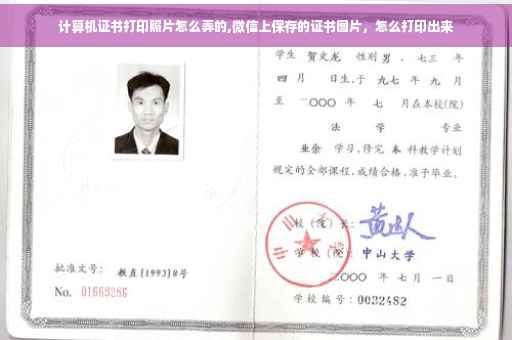 计算机证书打印照片怎么弄的,微信上保存的证书图片，怎么打印出来
学生 贺文龙 性别 男 、七三 年
四 月 日生,于 九七 年 九 月
至 二〇〇〇 年 七 月在本校(院)
法 学 专业
业余 学习,修完 本 科教学计划
规定的全部课程,成绩合格,准予毕业。
校(院)长:
学校(院): 中山大学
二〇〇〇 年 七 月 一 日
学校编号: 0032482
批准文号: 教直[1993]8号
No. 01669286